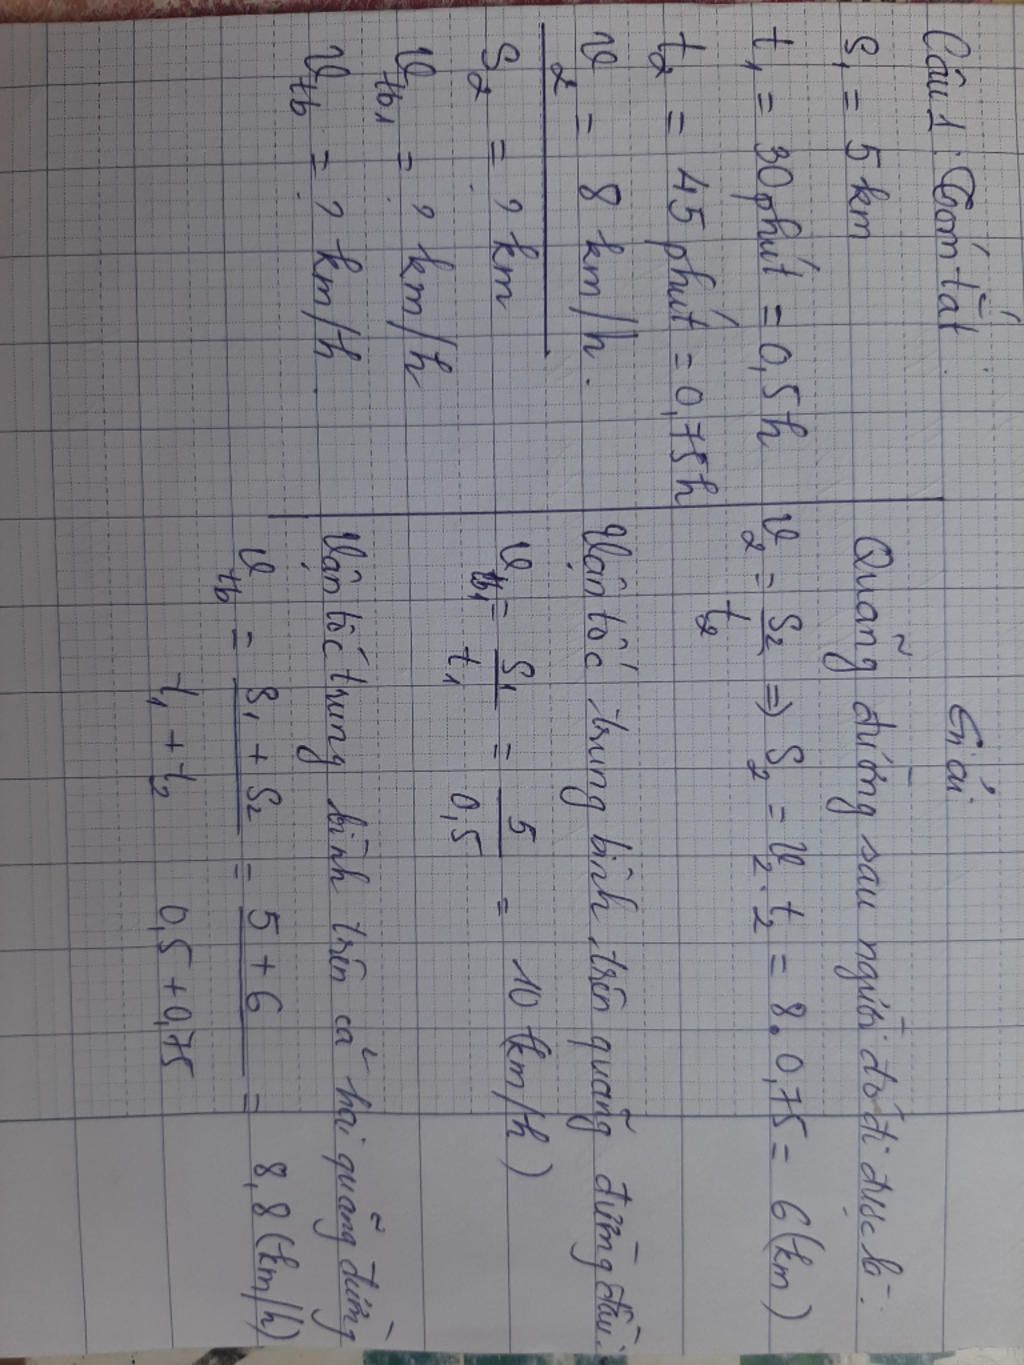 Câu 1: Tóm tắt.
S₁ = 5 km
t₁ = 30 phút = 0,5 h
t₂ = 45 phút = 0,75 h
v₂ = 8 km/h.
S₂ = ? km
v_tb1 = ? km/h
v_tb = ? km/h.
Giải:
Quãng đường sau người đó đi được là:
v₂ = S₂/t₂ => S₂ = v₂.t₂ = 8.0,75 = 6 (km)
Vận tốc trung bình trên quãng đường đầu:
v_tb1 = S₁/t₁ = 5/0,5 = 10 (km/h)
Vận tốc trung bình trên cả hai quãng đường
v_tb = S₁ + S₂/t₁ + t₂ = 5 + 6/0,5 + 0,75 = 8,8 (km/h)